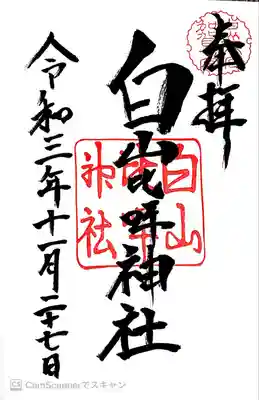 奉拝
白山比咩神社
白山
比咩
神社
令和三年十一月二十七日
CS CamScannerでスキャン